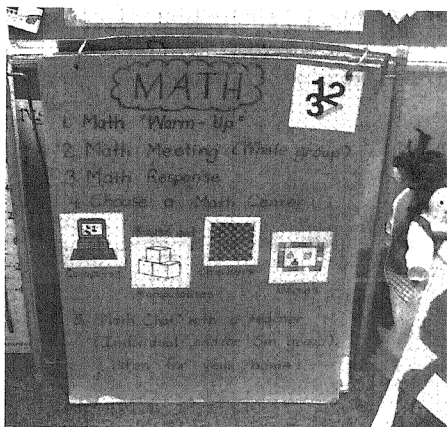 MATH
123
1. Math "Warm-Up"
2. Math Meeting (Whole group)
3. Math Response
4. Choose a Math Center
5. "Math Chat" with a teacher
(Individual and/or Sm. group)
listen for your name!